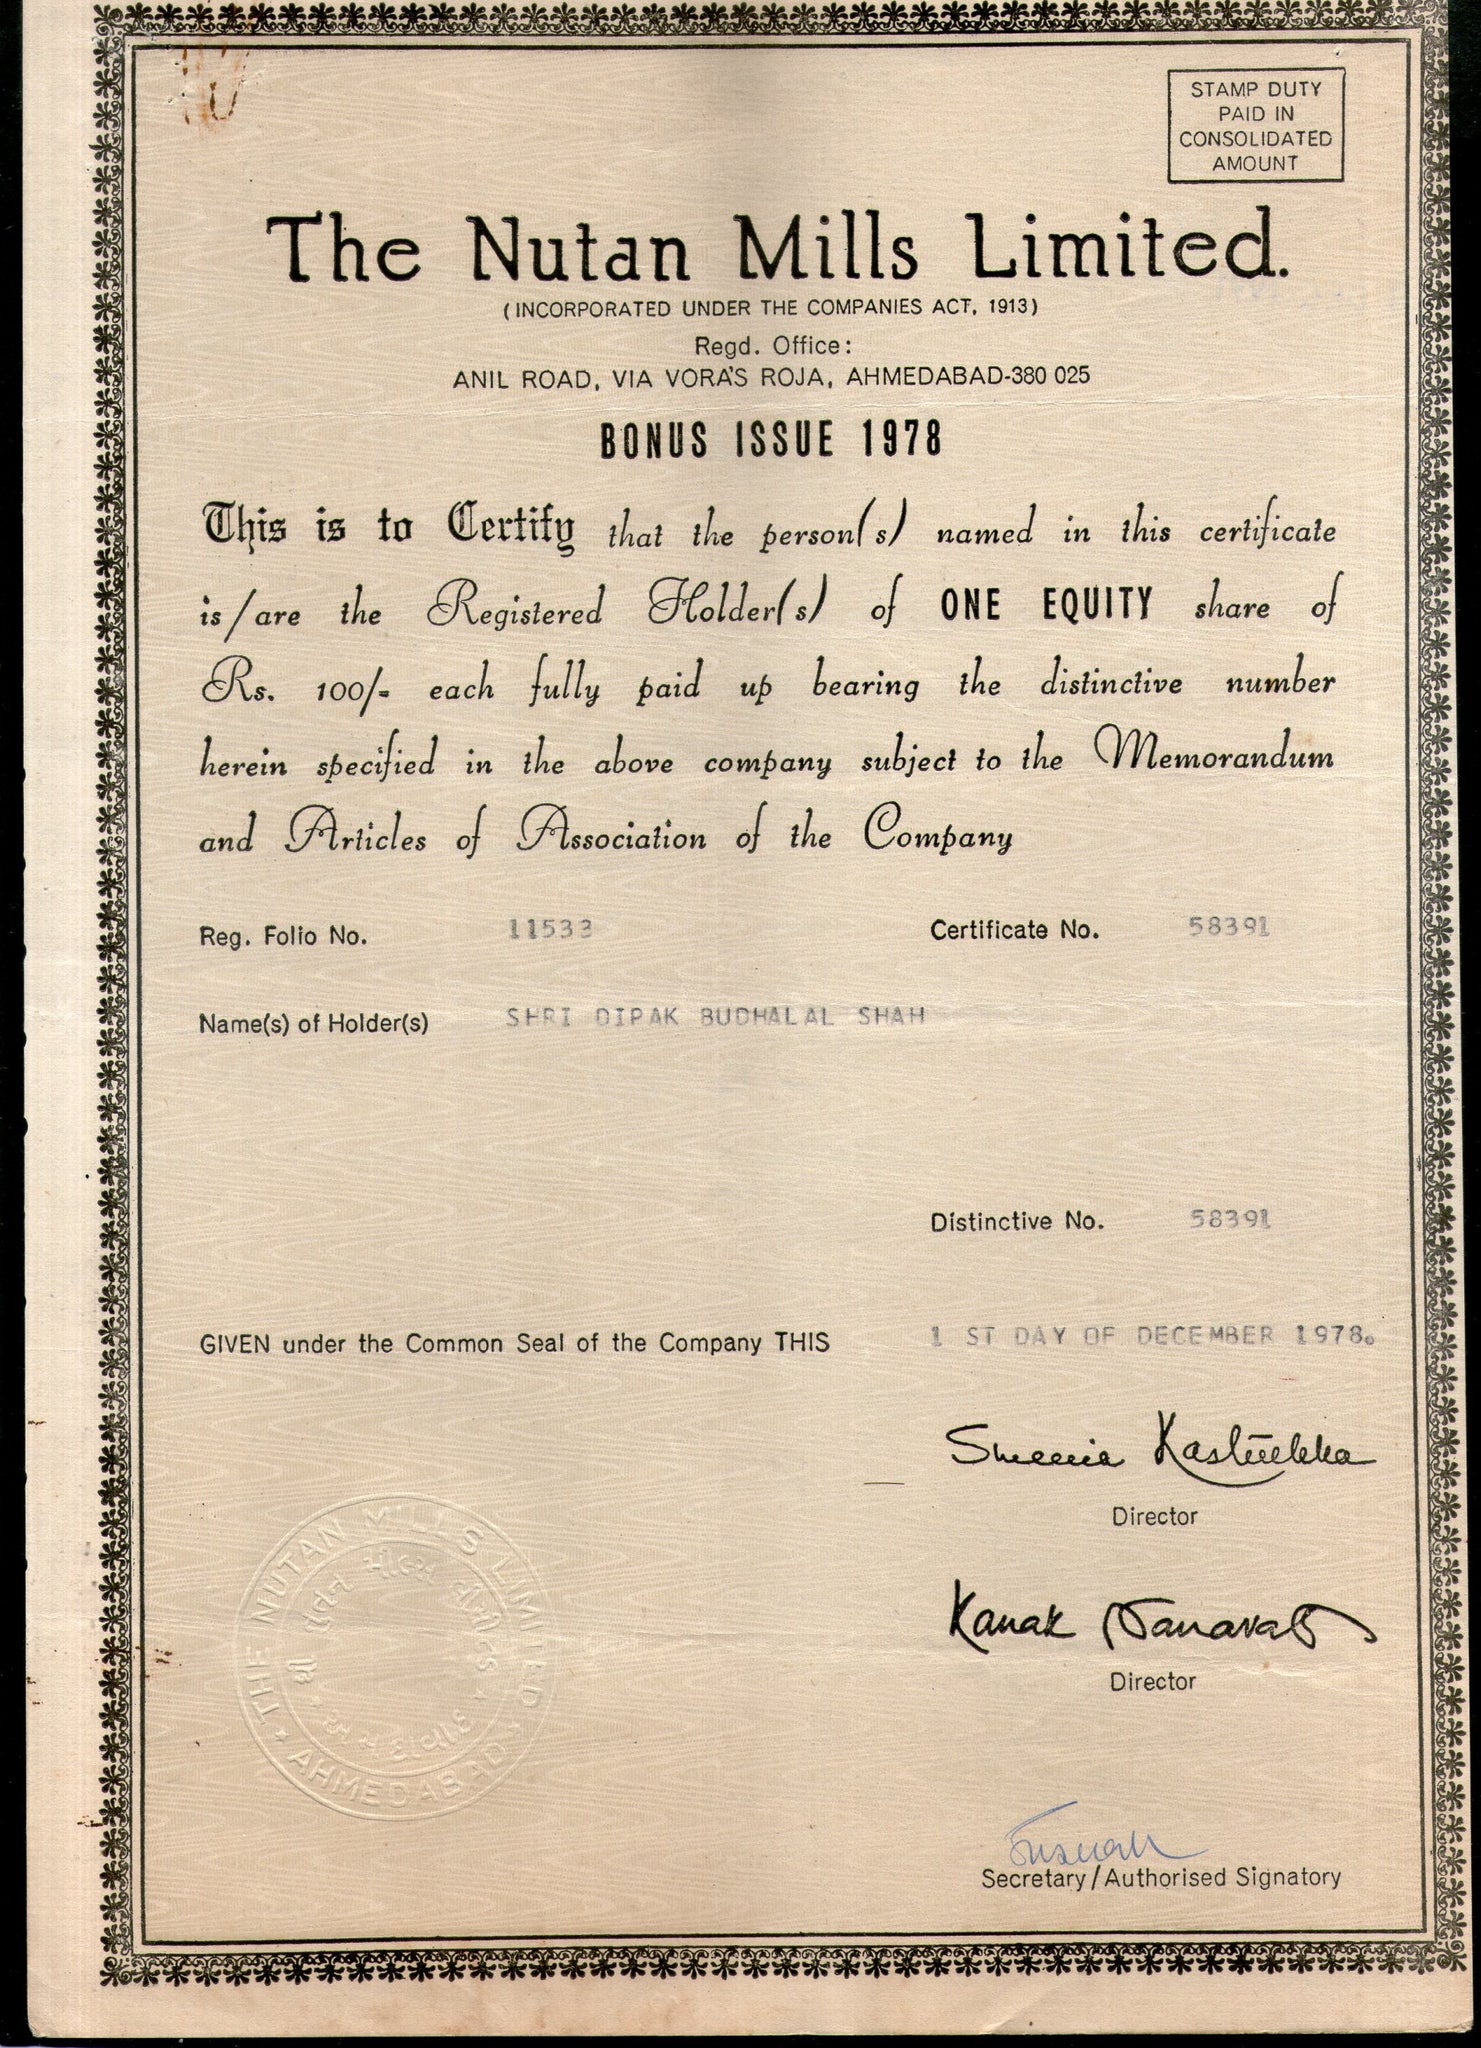 STAMP DUTY
PAID IN
CONSOLIDATED
AMOUNT
The Nutan Mills Limited.
(INCORPORATED UNDER THE COMPANIES ACT, 1913)
Regd. Office:
ANIL ROAD, VIA VORA'S ROJA, AHMEDABAD-380 025
BONUS ISSUE 1978
This is to Certify that the person(s) named in this certificate
is/are the Registered Holder(s) of ONE EQUITY share of
Rs. 100/- each fully paid up bearing the distinctive number
herein specified in the above company subject to the Memorandum
and Articles of Association of the Company
Reg. Folio No. 11533 Certificate No. 58391
Name(s) of Holder(s) SHRI DIPAK BUDHALAL SHAH
Distinctive No. 58391
GIVEN under the Common Seal of the Company THIS 1 ST DAY OF DECEMBER 1978.
Director
Kanak
Director
Secretary/Authorised Signatory
THE NUTAN MILLS LIMITED
AHMEDABAD